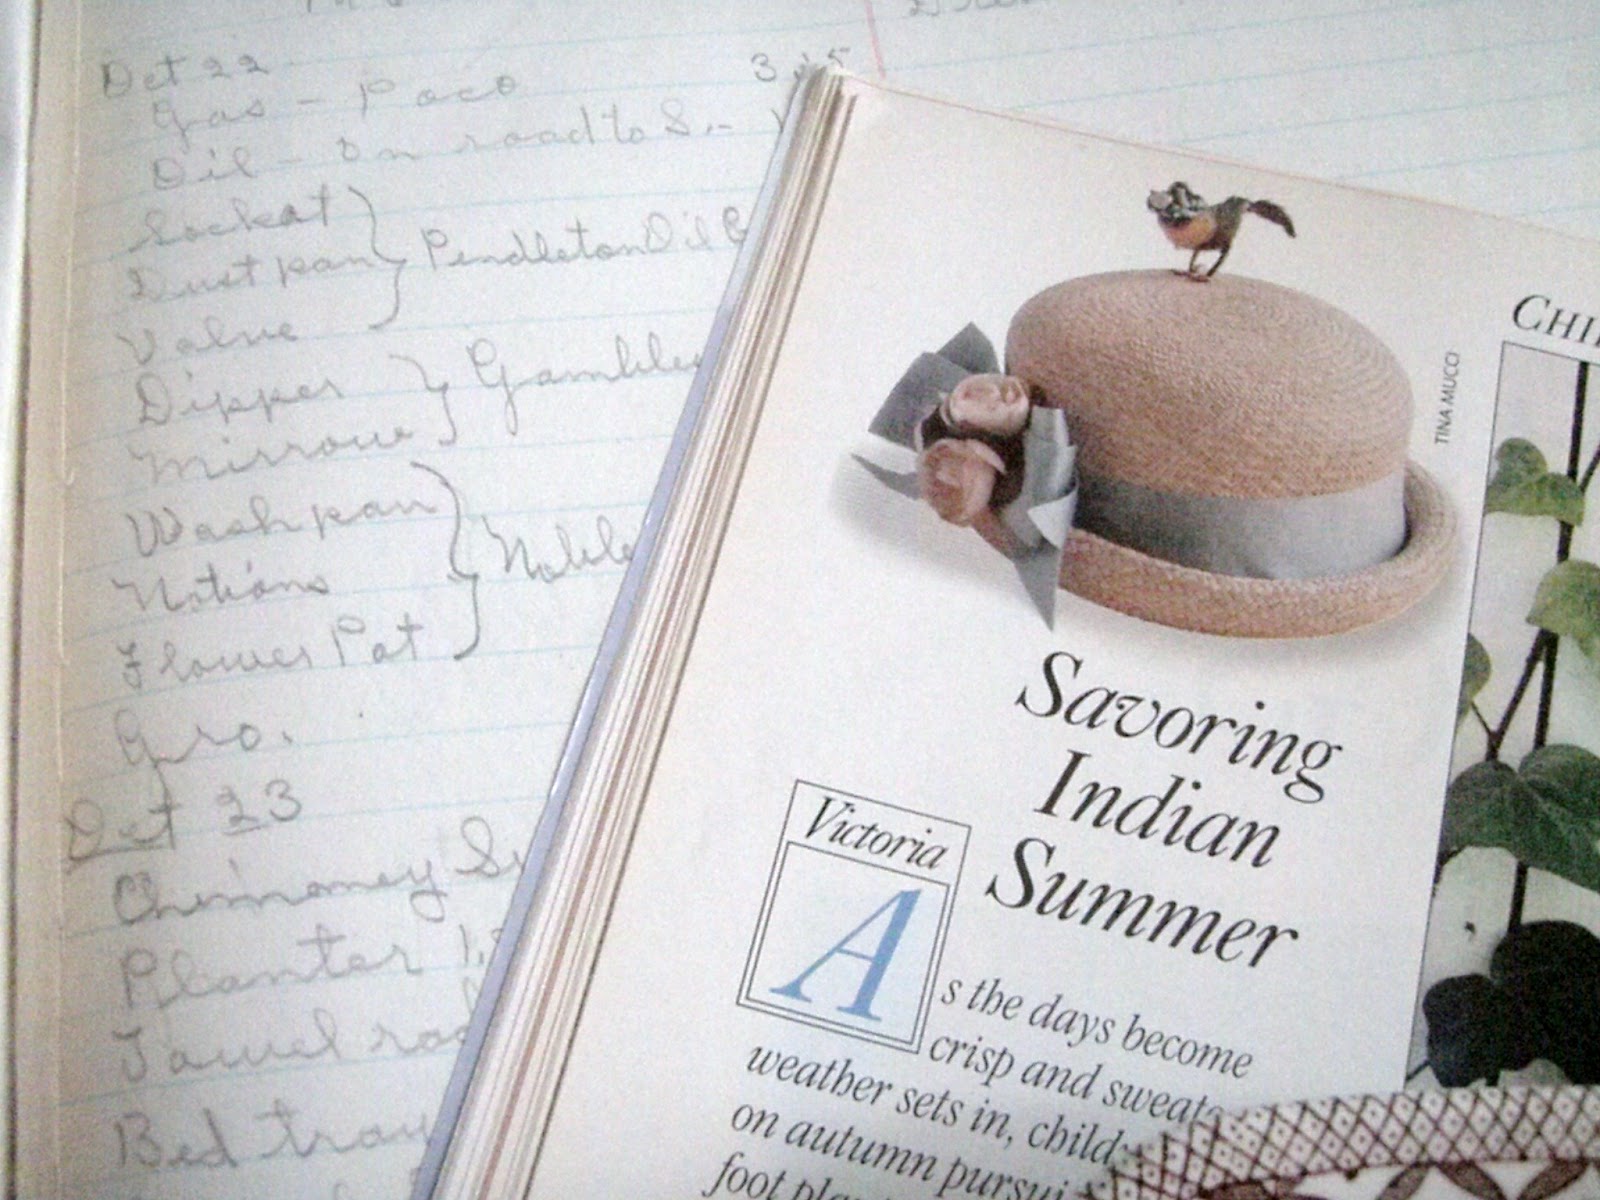 Oct 22
Gas - Poco 3
Oil - on road to S. -
Socket
Dust pan Pendleton Oil
Valve
Dipper Gambles
Mirrow
Wash pan
Notions Noble
Flower Pot
Gro.
Oct 23
Chimoney
Planter 1.
Towel
Bed tray
CHI
TINA MUCCI
Savoring
Indian
Summer
Victoria
As the days become
crisp and sweat
weather sets in, child
on autumn pursui
foot plan